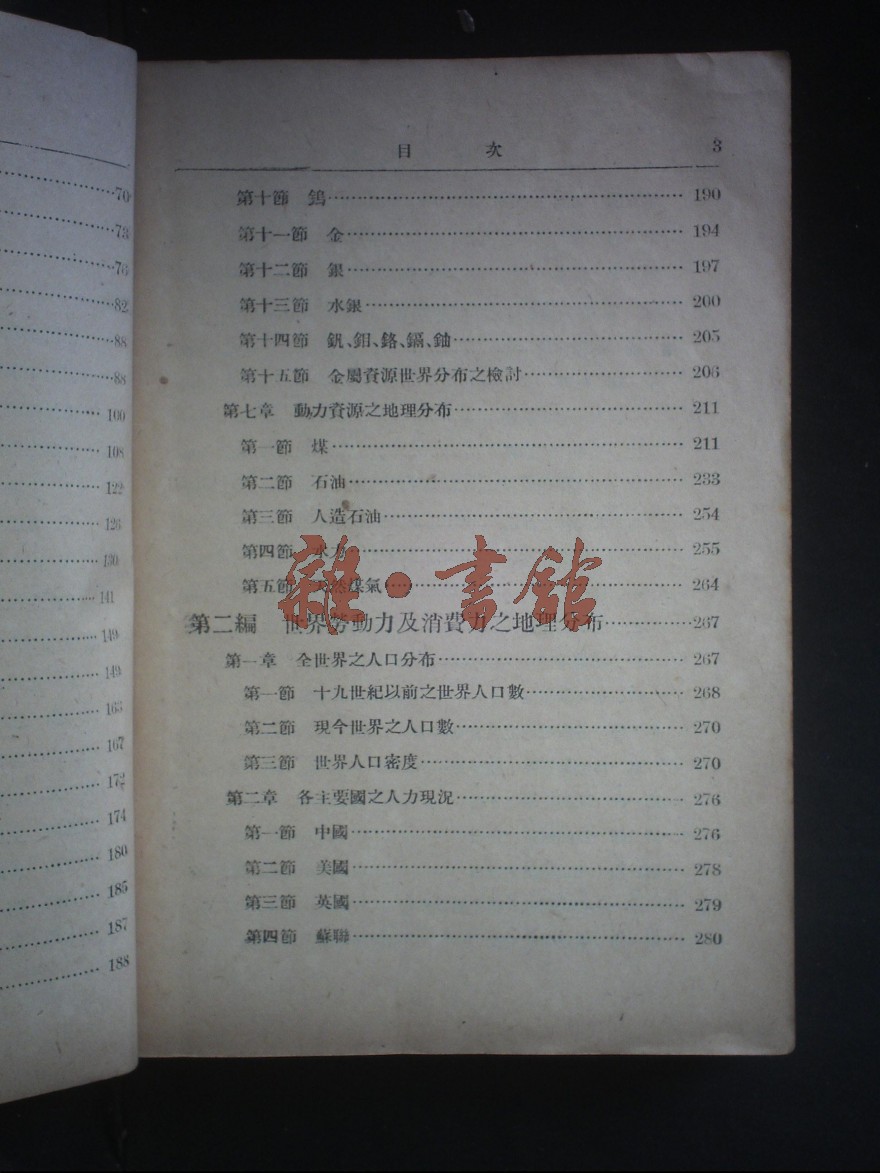 70
73
76
82
88
88
100
108
122
126
130
141
149
149
163
167
172
174
180
185
187
188
目 次 3
第十節 鎢 190
第十一節 金 194
第十二節 銀 197
第十三節 水銀 200
第十四節 釩、鉬、鉻、鎘、鈾 205
第十五節 金屬資源世界分布之檢討 206
第七章 動力資源之地理分布 211
第一節 煤 211
第二節 石油 233
第三節 人造石油 254
第四節 水力 255
第五節 天然煤氣 264
第二編 世界勞動力及消費力之地理分布 267
第一章 全世界之人口分布 267
第一節 十九世紀以前之世界人口數 268
第二節 現今世界之人口數 270
第三節 世界人口密度 270
第二章 各主要國之人力現況 276
第一節 中國 276
第二節 美國 278
第三節 英國 279
第四節 蘇聯 280
雜·書館